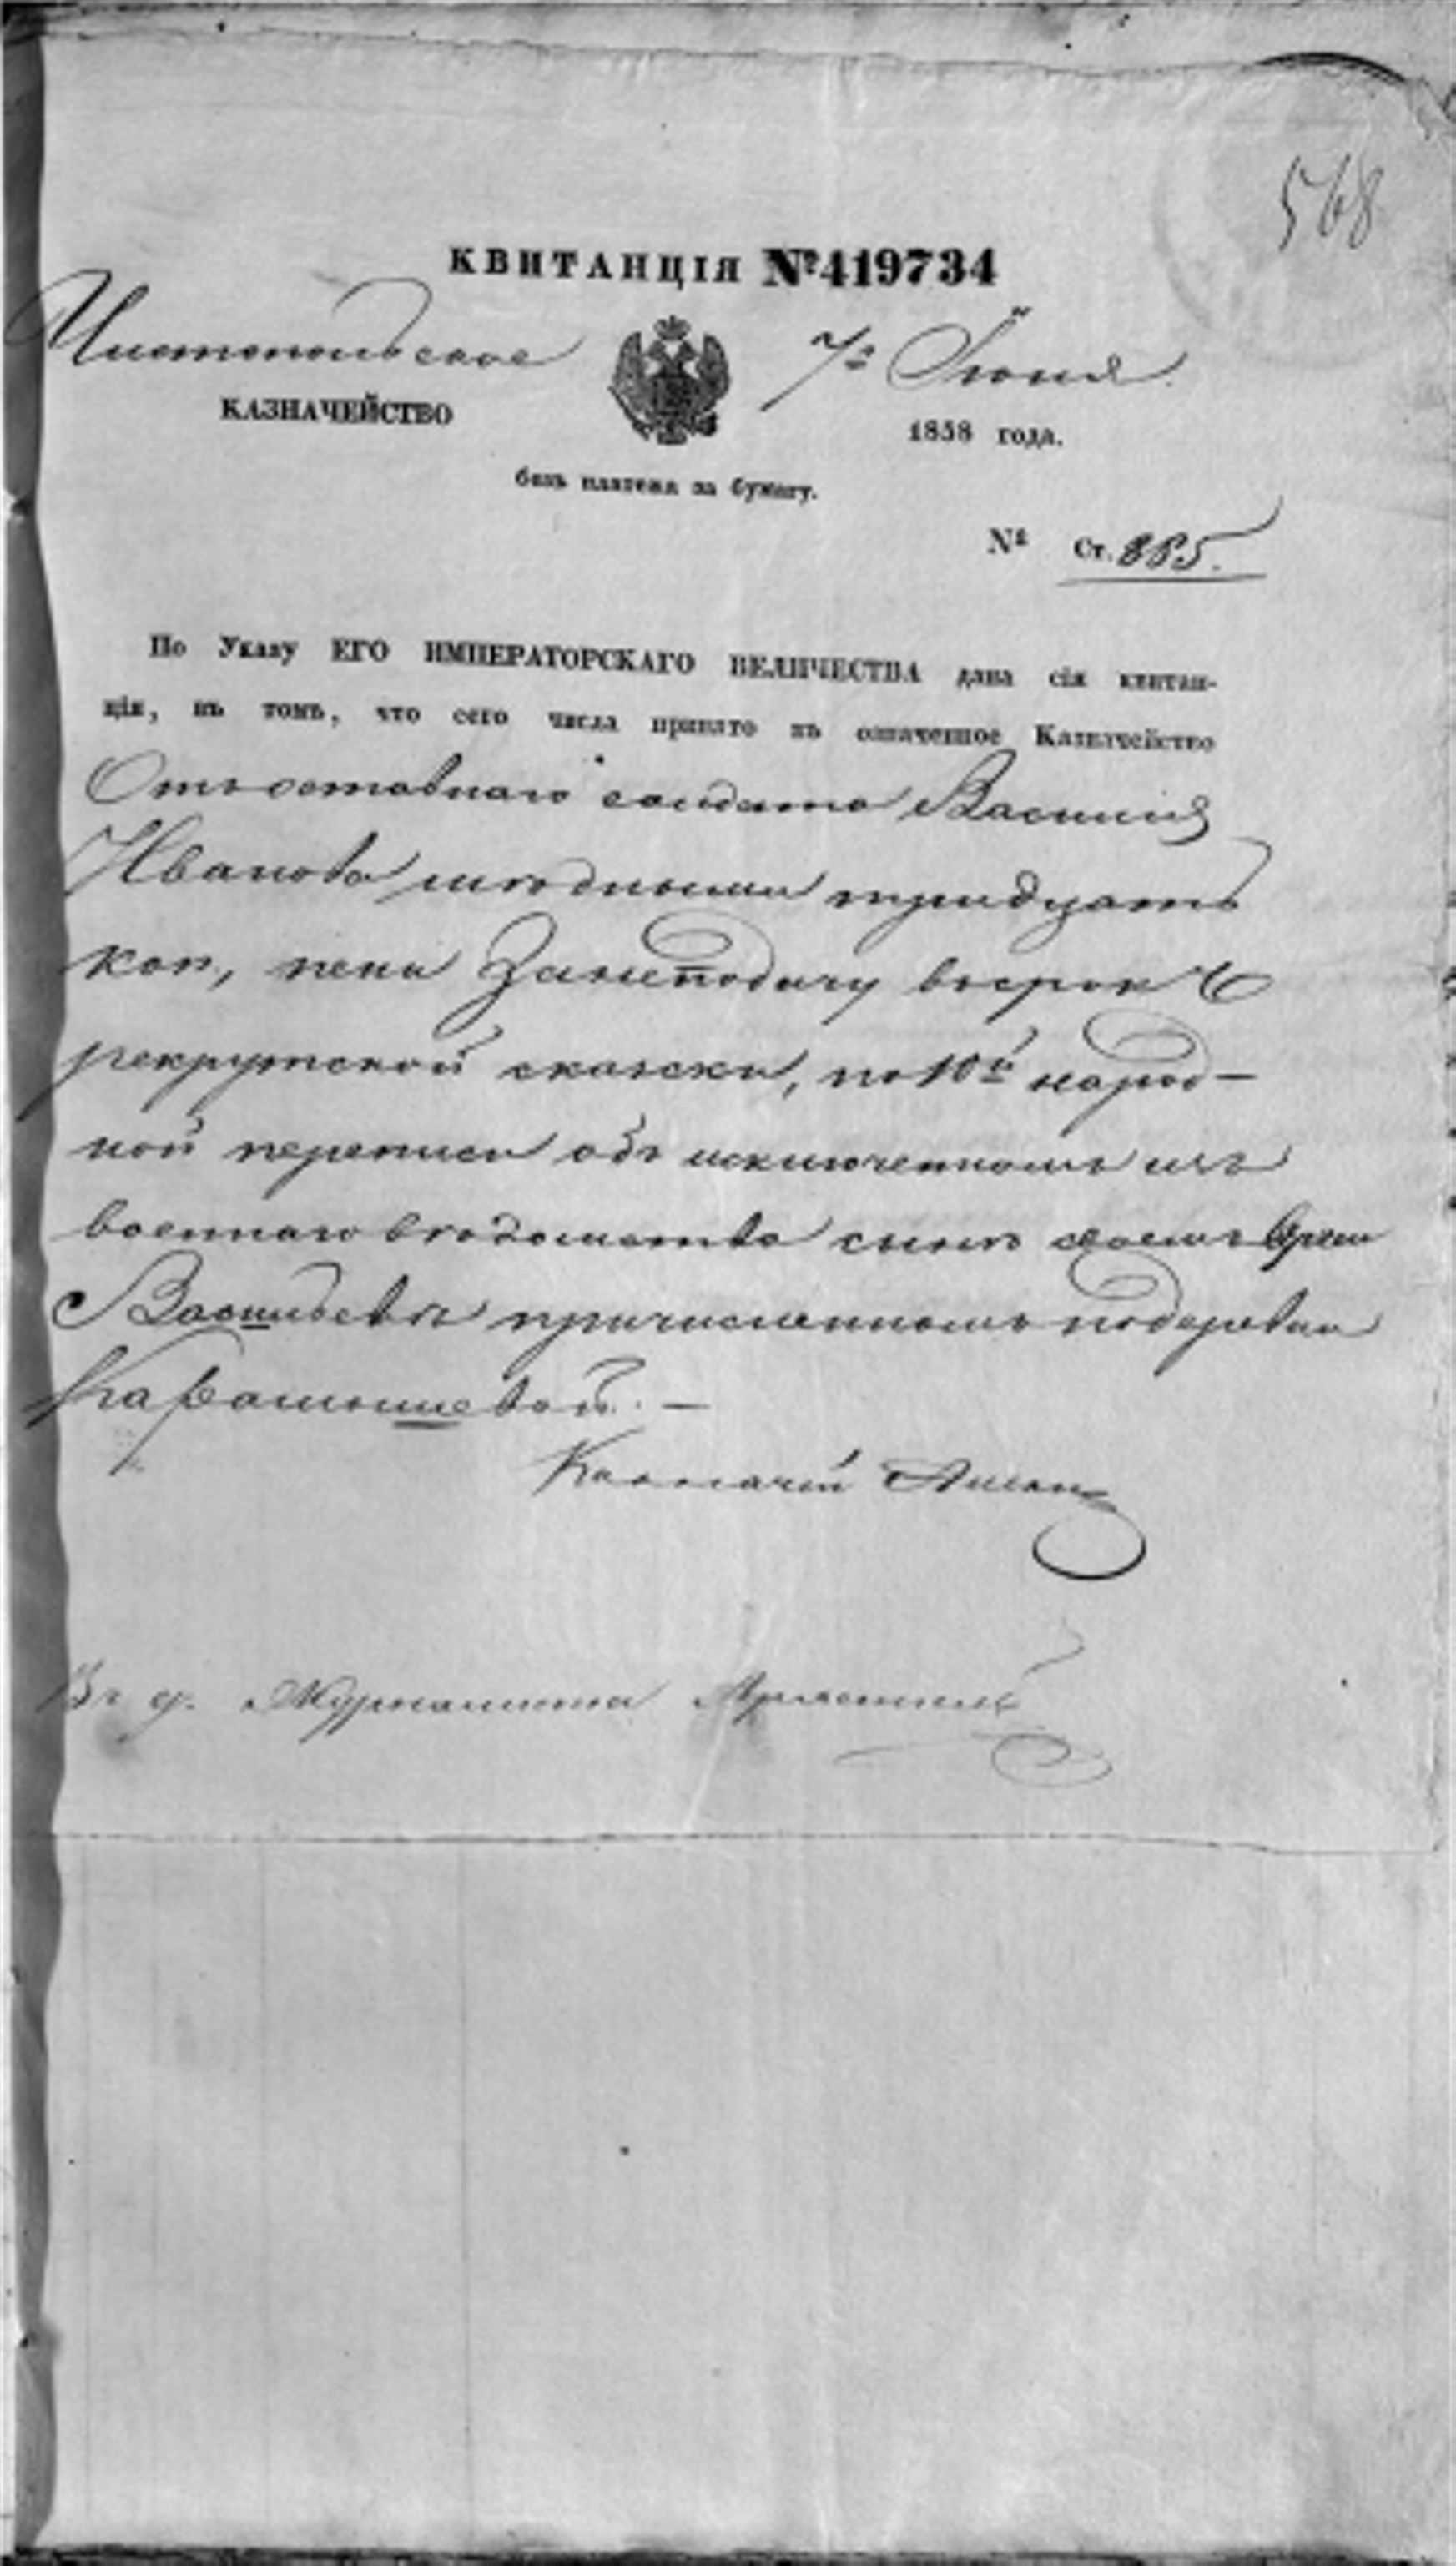 568
КВИТАНЦІЯ №419734
Чистопольское
7го Іюня
КАЗНАЧЕЙСТВО
1858 года.
безъ платежа за бумагу.
№ Ст. 885.
По Указу ЕГО ИМПЕРАТОРСКАГО ВЕЛИЧЕСТВА дана сія квитан-
ція, въ томъ, что сего числа принято въ означенное Казначейство
Отъ отставнаго солдата Василія
Иванова мѣдными тридцать
коп, пени за неподачу въ срок
рекрутской сказки, по 10й народ-
ной переписи объ исключенномъ изъ
военнаго вѣдомства сынѣ своемъ
Васильевѣ причисленномъ по деревни
Карамышевой. —
Казначей
Журналиста